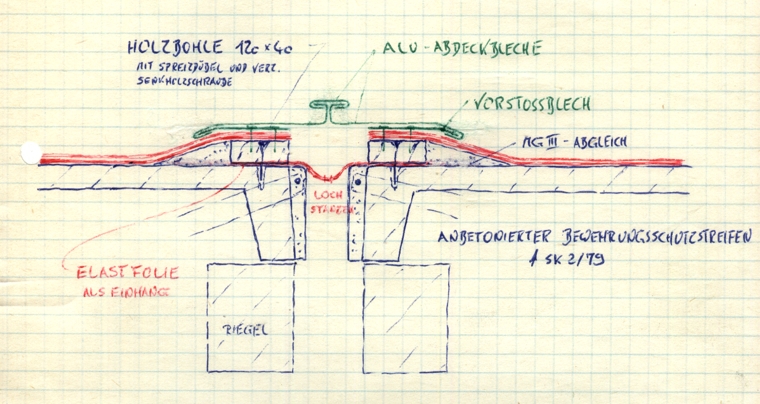 HOLZBOHLE 120 × 40
MIT SPREIZDÜBEL UND VERZ.
SENKHOLZSCHRAUBE
ALU-ABDECKBLECHE
VORSTOSSBLECH
MG III - ABGLEICH
LOCH
STANZEN
ANBETONIERTER BEWEHRUNGSSCHUTZSTREIFEN
SK 2/79
ELASTFOLIE
ALS EINHÄNGE
RIEGEL